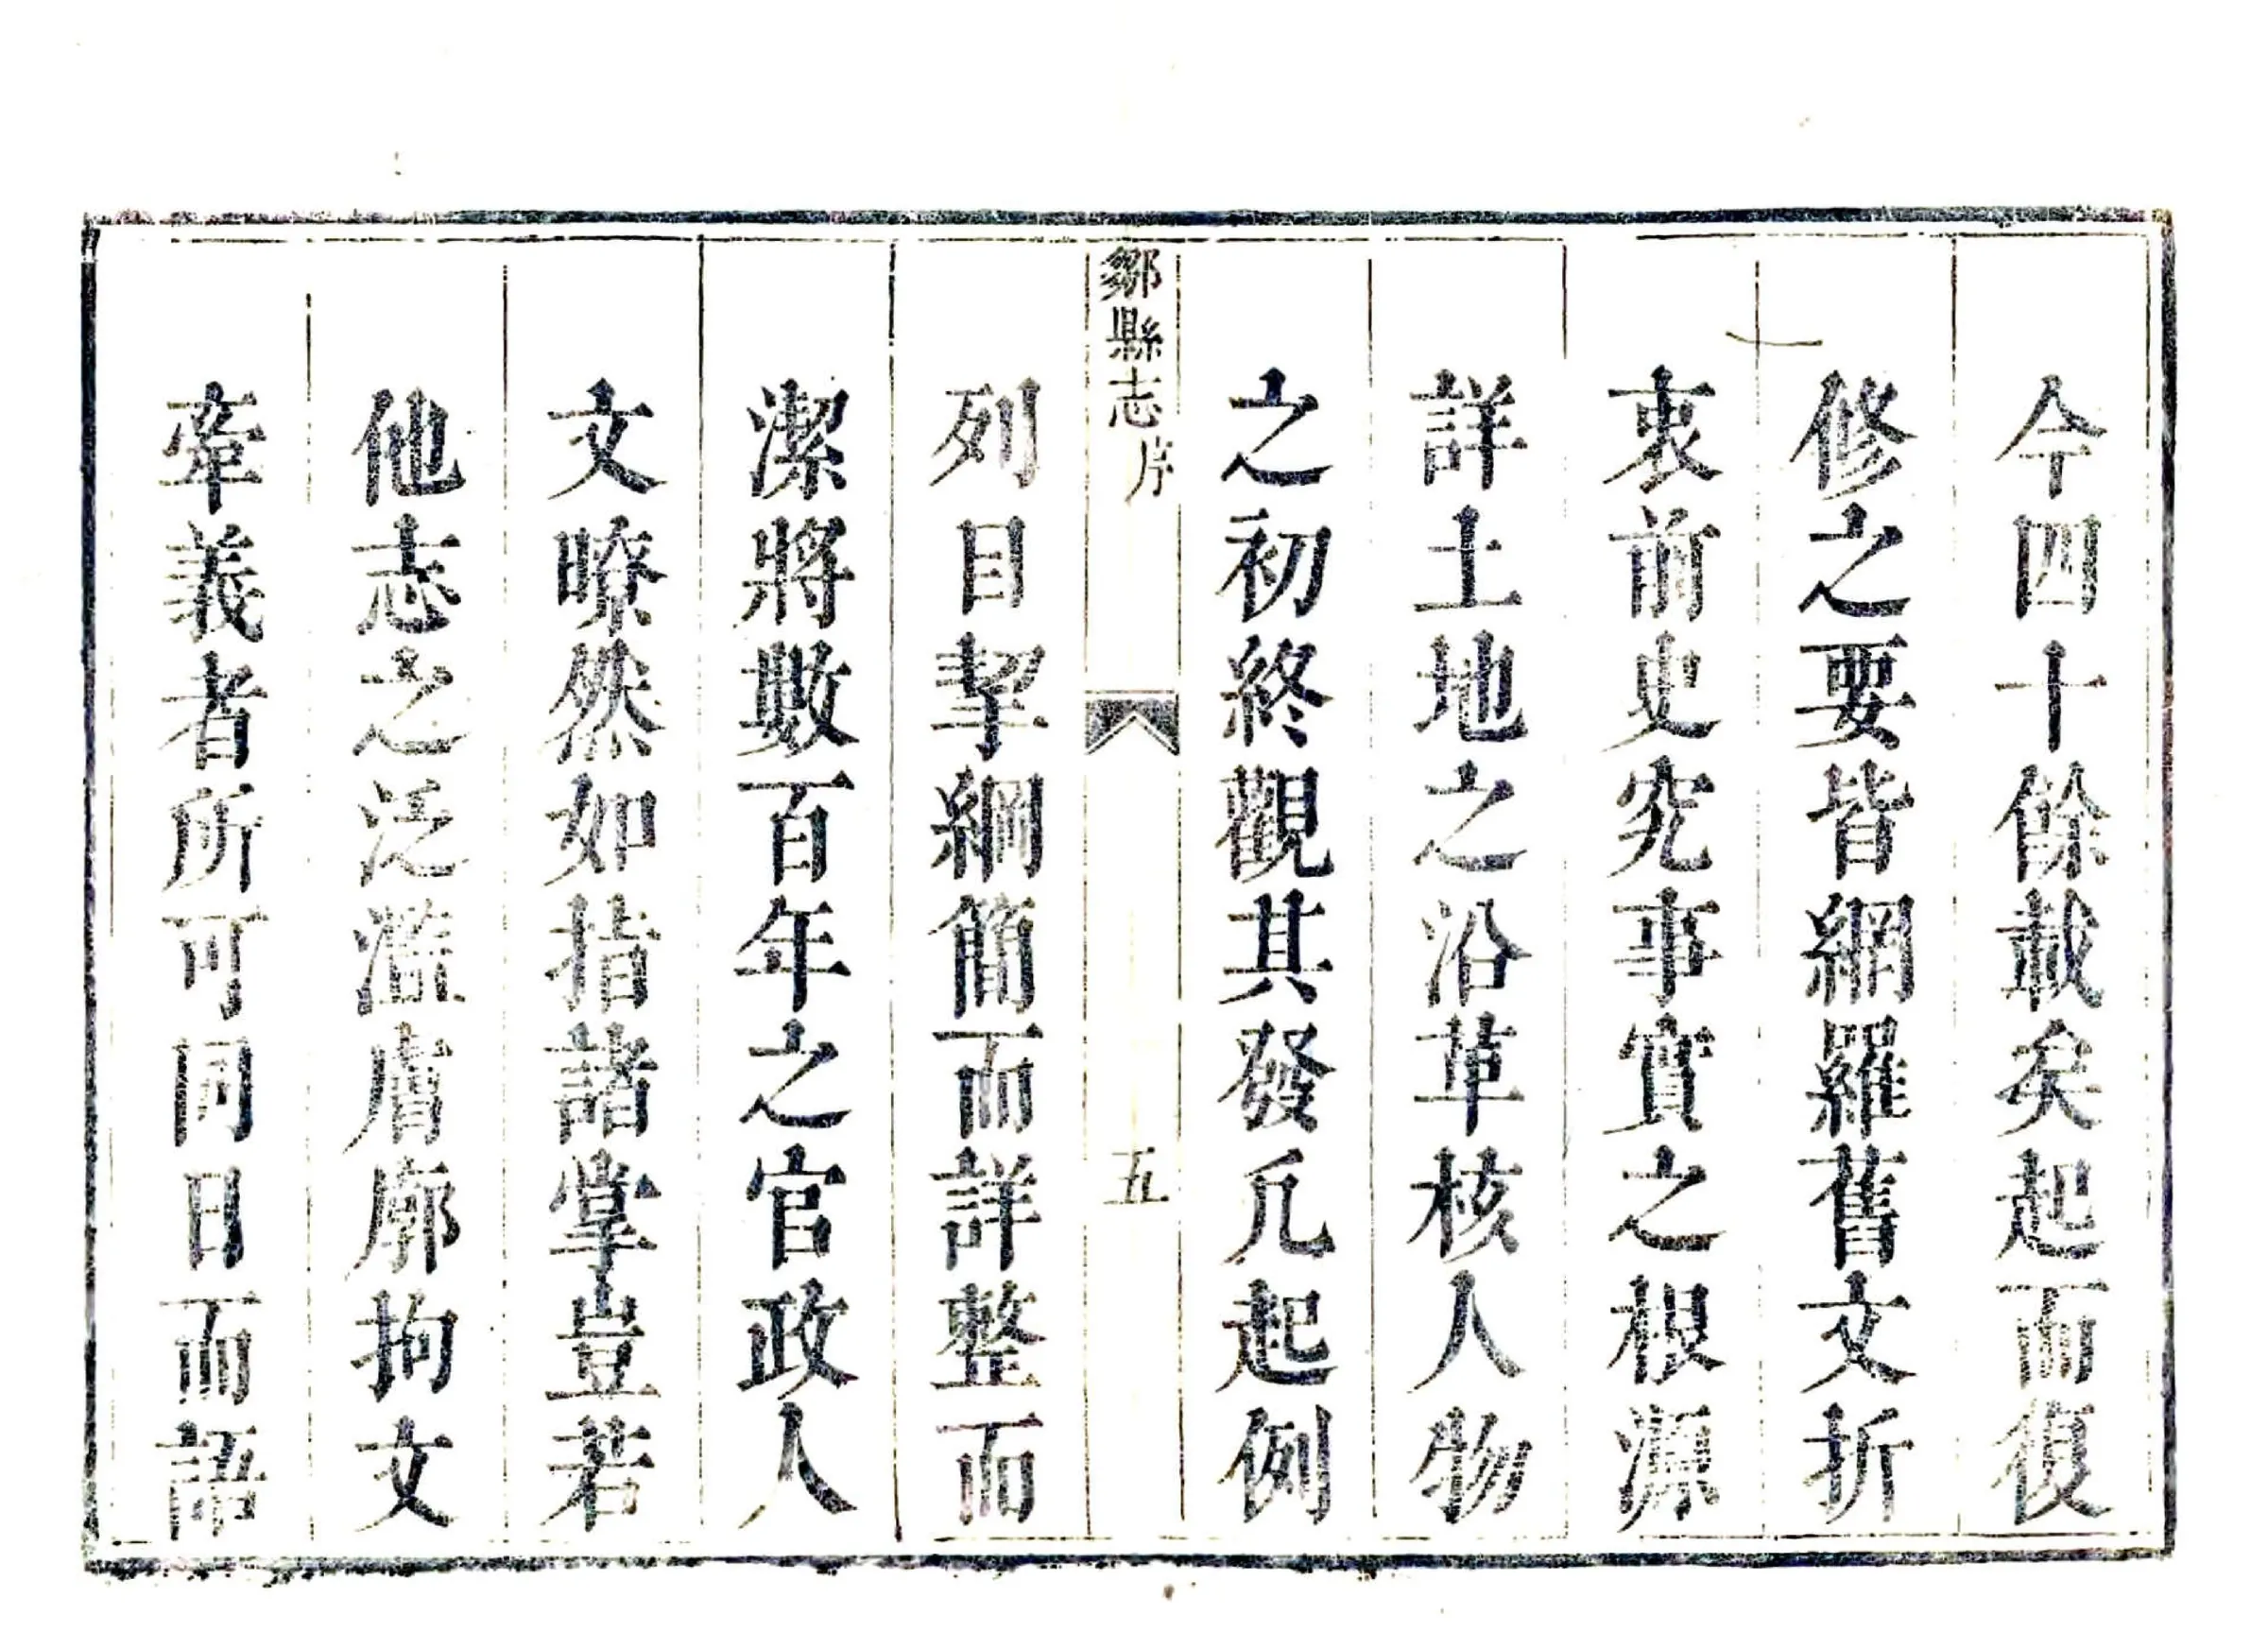 今四十餘載矣起而復
修之要皆網羅舊文折
衷前史究事實之根源
詳土地之沿革核人物
之初終觀其發凡起例
鄒縣志 序
五
列目挈綱簡而詳整而
潔將數百年之官政人
文暸然如指諸掌豈若
他志之泛濫膚廓拘文
牽義者所可同日而語